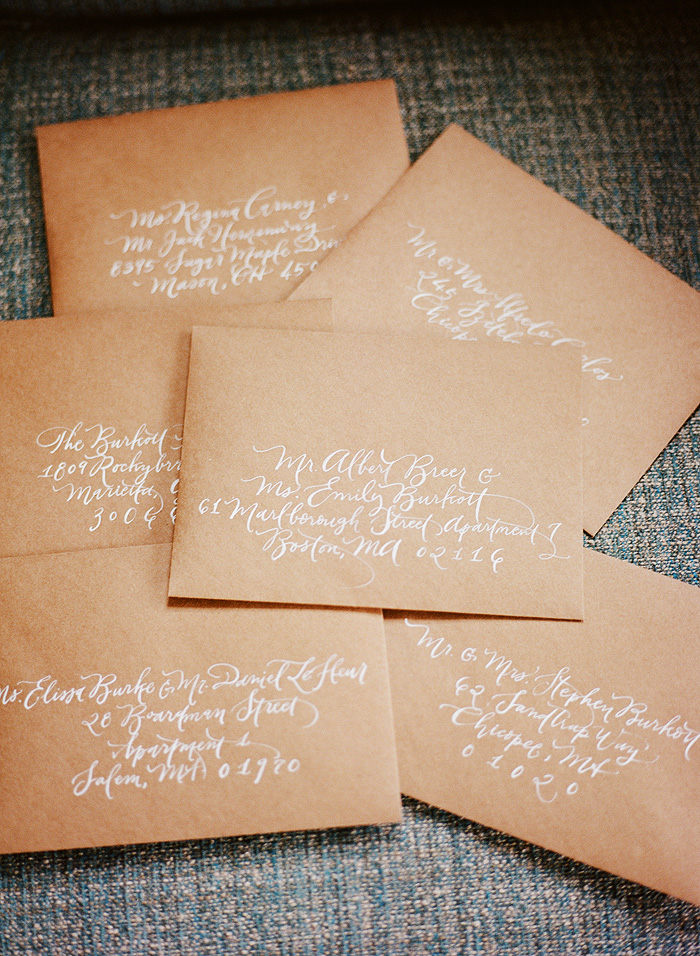 Ms. Regina Carney &
Mr. Jack Hemenway
8395 Sugar Maple Driv
Mason, OH 450
Mr & Mrs. Alfredo
245
Chicop
The Burkott
1809 Rochybr
Marietta,
30068
Mr. Albert Breer &
Ms. Emily Burkott
61 Marlborough Street Apartment 7
Boston, MA 02116
Ms. Elissa Burke & Mr. Daniel LeFleur
28 Boardman Street
Apartment 1
Salem, MA 01970
Mr. & Mrs. Stephen Burkott
62 Sandtrap Way
Chicopee, MA
01020